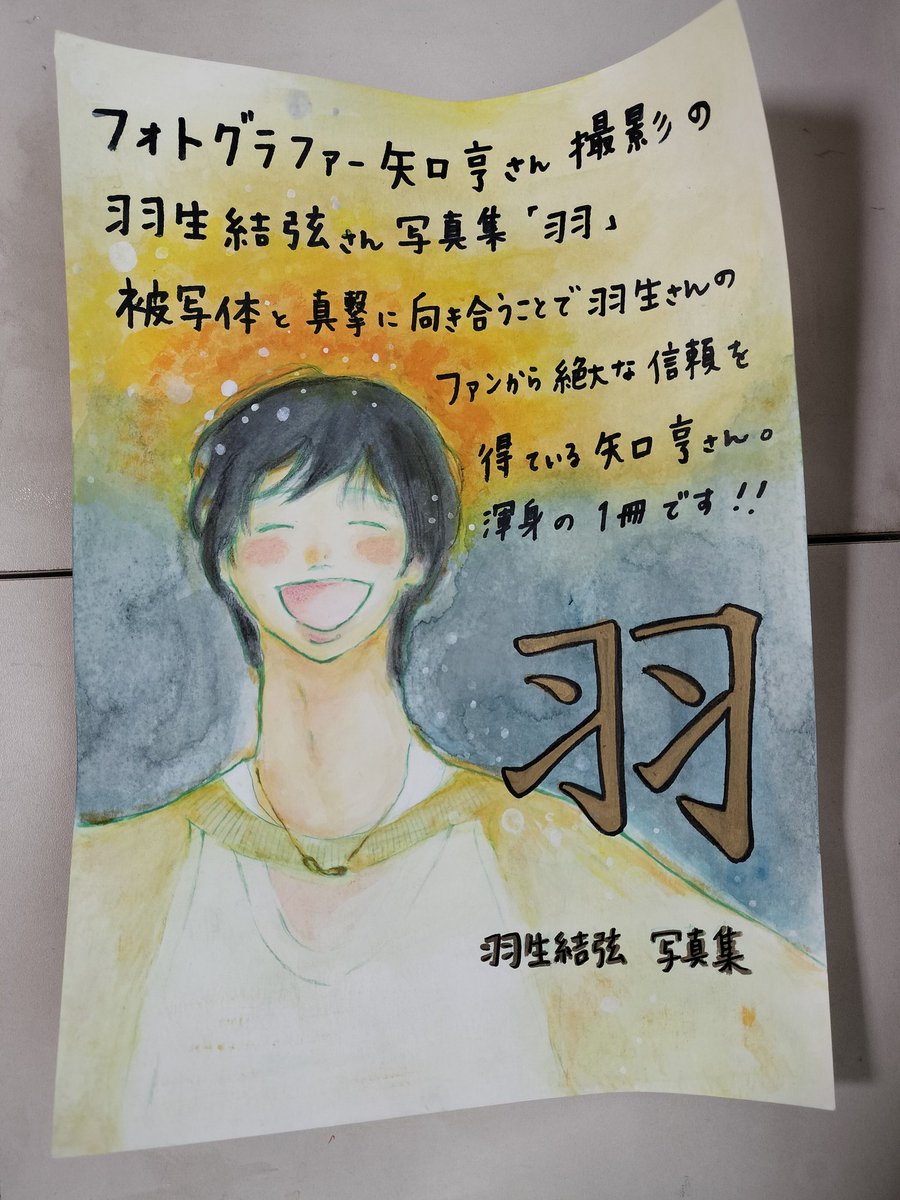 フォトグラファー矢口亨さん撮影の
羽生結弦さん写真集「羽」
被写体と真摯に向き合うことで羽生さんの
ファンから絶大な信頼を
得ている矢口亨さん。
渾身の1冊です!!
羽
羽生結弦 写真集